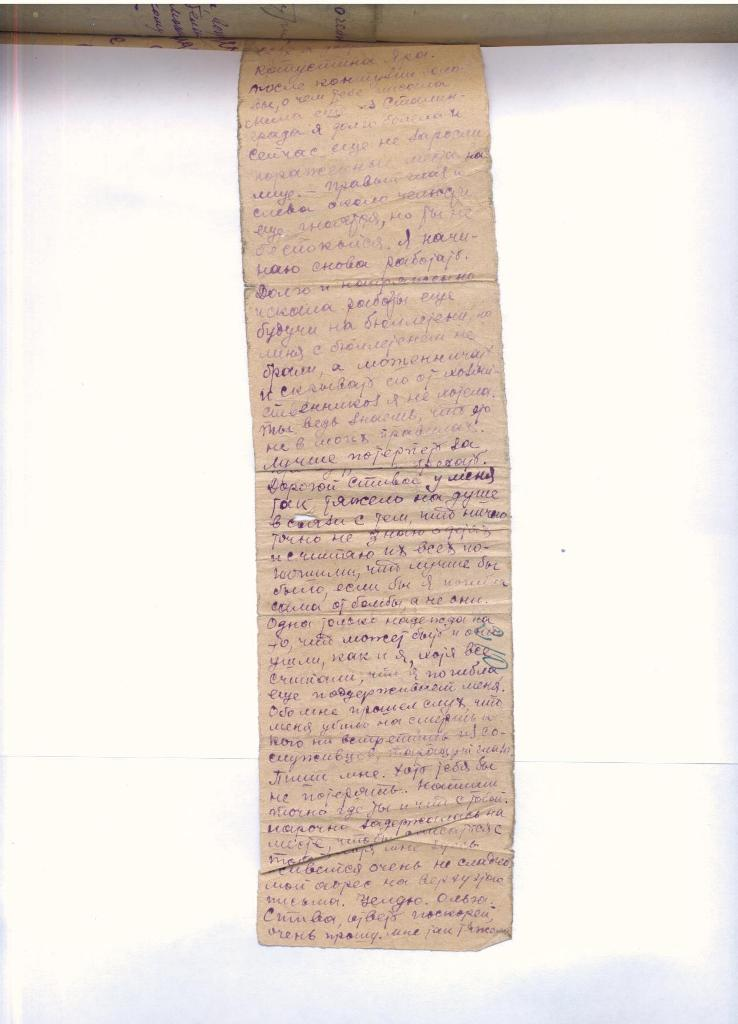 Капустина Яра.
после контузии
бы, о чем тебе писала
еще в Сталин-
граде я долго болела и
сейчас еще не заросли
пораженные места на
лице. – Правый глаз и
слева около челюсти
еще гноятся, но ты не
беспокойся. Я начи-
наю снова работать.
Долго и напряженно
искала работы еще
будучи на бюллетени, но
меня с бюллетенем не
брали, а мошенничать
и скрывать его от хозяй-
ственников я не хотела.
Ты ведь знаешь, что это
не в моих правилах.
Лучше потерпеть за
Дорогой Стива у меня
так тяжело на душе
в связи с тем, что ничего
точно не знаю о детях
и считаю их всех по-
гибшими, что лучше бы
было, если бы я погибла
сама от бомбы, а не они.
Одна только надежда на
то, что может быть и они
ушли, как и я, хотя все
считали, что я погибла
еще поддерживает меня.
Обо мне прошел слух, что
меня убило на смерть и
кого ни встретишь из со-
служивцев, глаза.
Пиши мне. Хоть тебя бы
не потерять. Напиши
точно где ты и что с тобой.
Нарочно задержалась на
месте, чтобы списаться с
тобой, хотя мне здесь
живется очень не сладко
мой адрес на верху этого
письма. Целую. Ольга.
Стива, ответь поскорей,
очень прошу. мне так тяжело